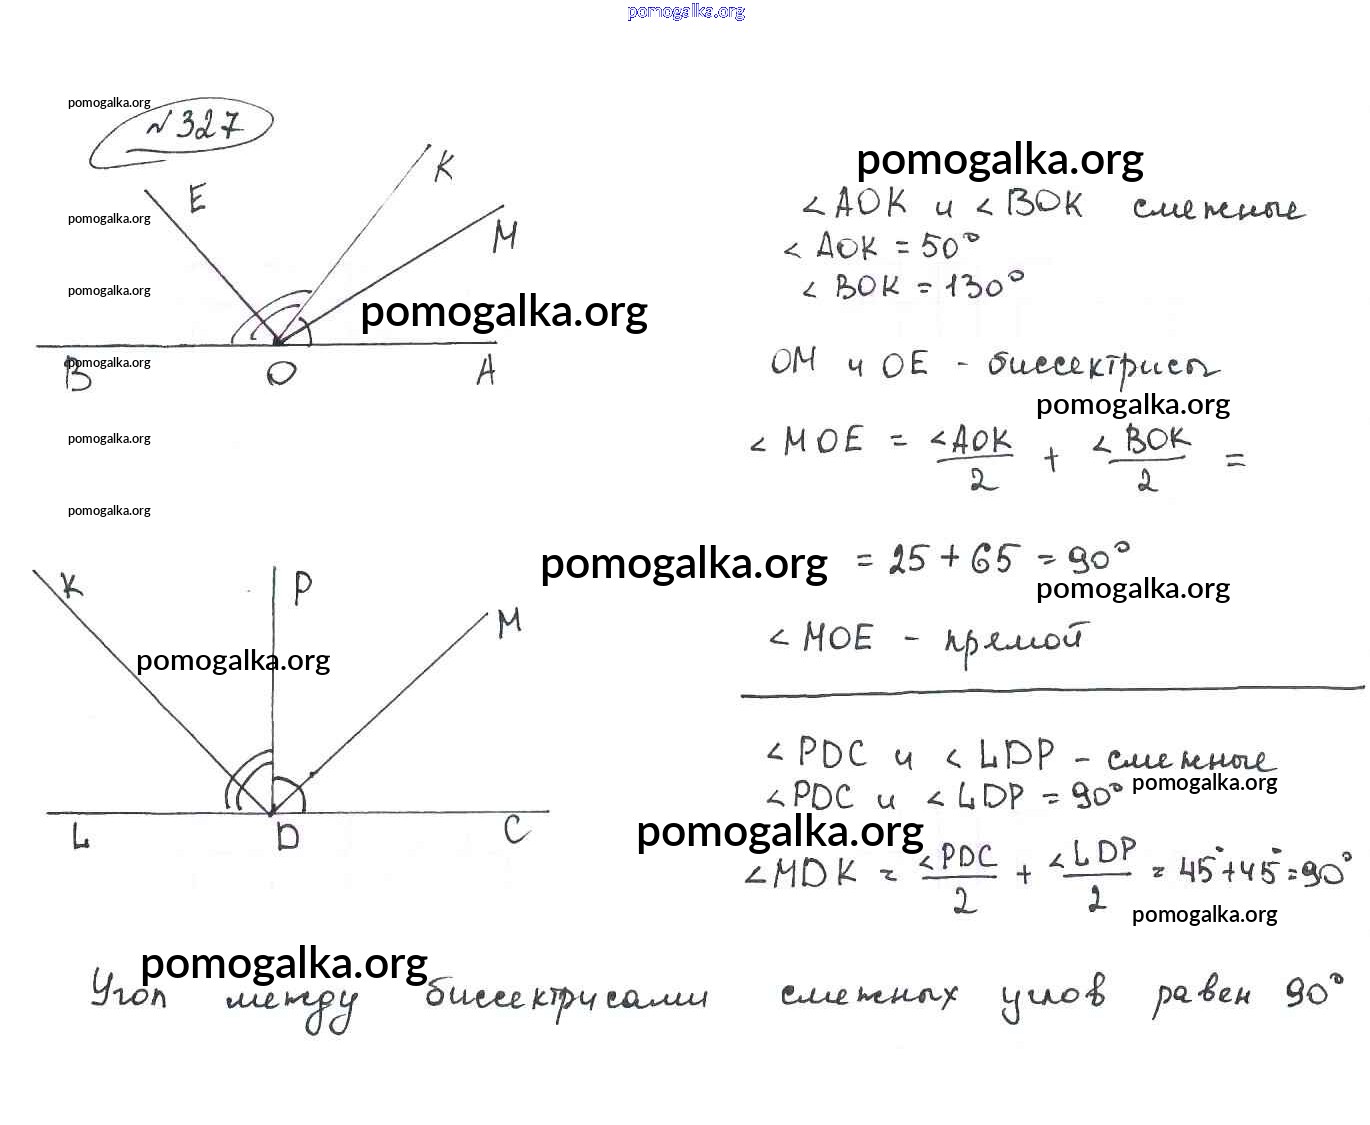 pomogalka.org
pomogalka.org
№ 327
pomogalka.org
E K M
pomogalka.org
pomogalka.org
B O A
pomogalka.org
pomogalka.org
pomogalka.org
K P M
pomogalka.org
L D C
pomogalka.org
∠AOK и ∠BOK смежные
∠AOK = 50°
∠BOK = 130°
OM и OE - биссектрисы
pomogalka.org
∠MOE = ∠AOK/2 + ∠BOK/2 =
pomogalka.org
= 25 + 65 = 90°
pomogalka.org
∠MOE - прямой
∠PDC и ∠LDP - смежные
pomogalka.org
∠PDC и ∠LDP = 90°
pomogalka.org
∠MDK = ∠PDC/2 + ∠LDP/2 = 45°+45°=90°
pomogalka.org
pomogalka.org
Угол между биссектрисами смежных углов равен 90°